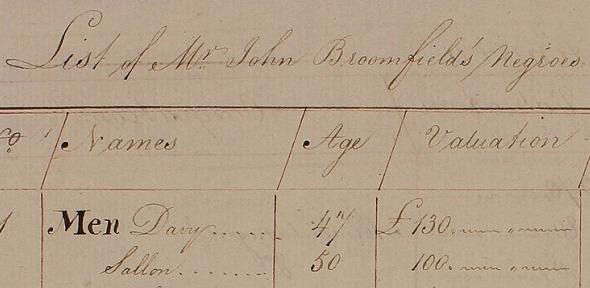 List of Mr. John Broomfield's Negroes
No. Names Age Valuation
1 Men Davy...... 47 £130. " "
Sallon........ 50 100. " "